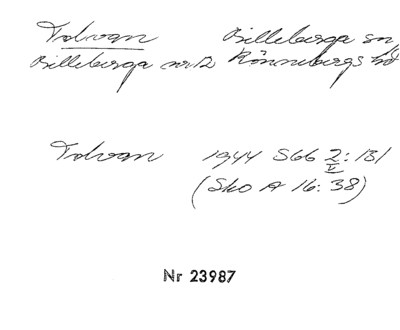 Tolvan Billeberga sn
Billeberga nr 12 Rönnebergs hd
Tolvan 1944 S66 2:131
V
(Sko A 16:38)
Nr 23987